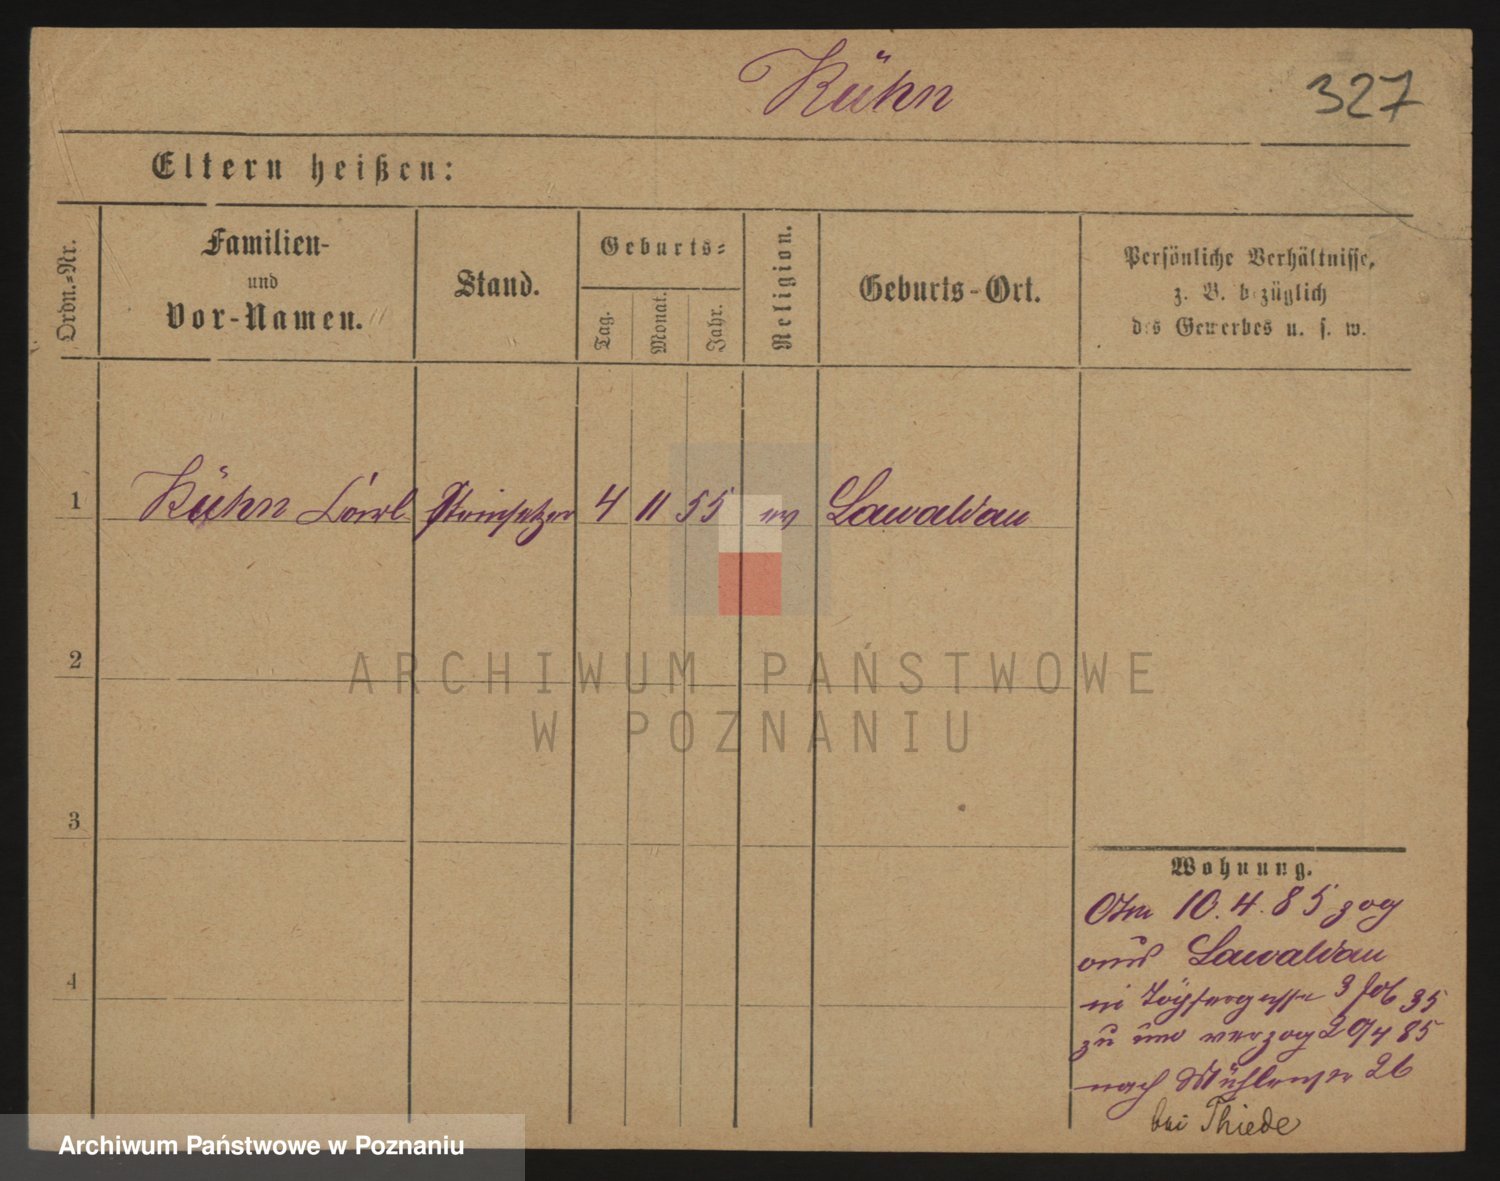 Kühn
327
Eltern heißen:
Ordn.-Nr.
Familien-
und
Vor-Namen.
Stand.
Geburts-
Tag.
Monat.
Jahr.
Religion.
Geburts-Ort.
Persönliche Verhältnisse,
z. B. bezüglich
des Gewerbes u. s. w.
1 Kühn Carl Steinsetzer 4 11 55 ev Lawaldau
2
3
4
Wohnung.
Am 10.4.85 zog
aus Lawaldau
in Töpfergasse 3
zu und verzog 29/4 85
nach 26
bei Thiede
ARCHIWUM PAŃSTWOWE
W POZNANIU
Archiwum Państwowe w Poznaniu